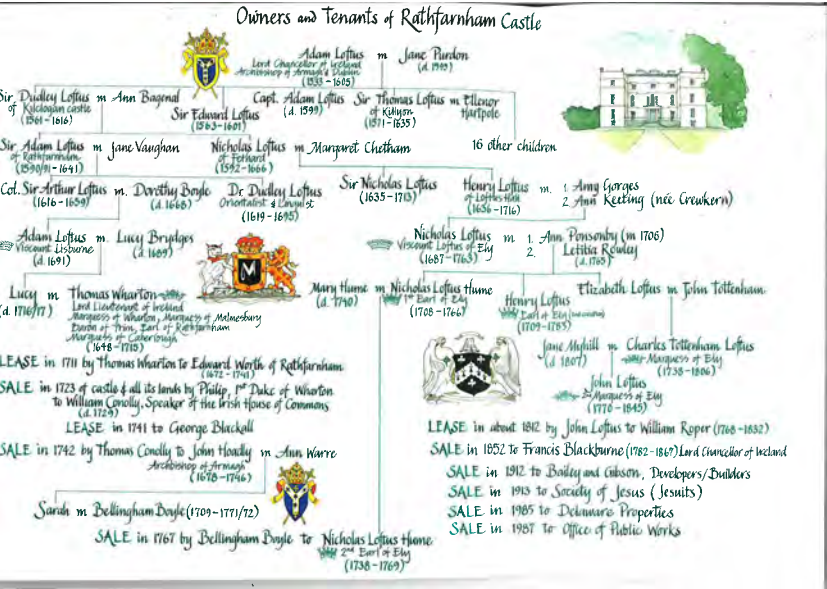 Owners and Tenants of Rathfarnham Castle
Adam Loftus m Jane Purdon
Lord Chancellor of Ireland
Archbishop of Armagh & Dublin
(1533-1605)
Sir Dudley Loftus m Ann Bagenal
of Kilclogan castle
(1561-1616)
Sir Edward Loftus
(1563-1601)
Capt. Adam Loftus
(d. 1599)
Sir Thomas Loftus m Ellenor Hartpole
of Killyon
(1571-1635)
16 other children
Sir Adam Loftus m Jane Vaughan
of Rathfarnham
(1590/91-1641)
Nicholas Loftus m Margaret Chetham
of Fethard
(1592-1666)
Col. Sir Arthur Loftus m. Dorothy Boyle
(1616-1659) (d. 1668)
Dr Dudley Loftus
Orientalist & Linguist
(1619-1695)
Sir Nicholas Loftus
(1635-1713)
Henry Loftus m. 1. Amy Gorges
of Loftus Hall 2. Ann Keeting (née Crewkern)
(1636-1716)
Adam Loftus m. Lucy Brydges
Viscount Lisburne (d. 1689)
(d. 1691)
Nicholas Loftus m. 1. Ann Ponsonby (m 1706)
Viscount Loftus of Ely 2. Letitia Rowley
(1687-1763) (d. 1765)
M
Lucy m Thomas Wharton
(d. 1716/17) Lord Lieutenant of Ireland
Marquess of Wharton, Marquess of Malmesbury
Baron of Trim, Earl of Rathfarnham
Marquess of Catherlough
(1648-1715)
Mary Hume m Nicholas Loftus Hume
(d. 1740) 1st Earl of Ely
(1708-1766)
Henry Loftus
Earl of Ely
(1709-1783)
Elizabeth Loftus m John Tottenham
Jane Myhill m Charles Tottenham Loftus
(d. 1807) Marquess of Ely
(1738-1806)
John Loftus
Marquess of Ely
(1770-1845)
LEASE in 1711 by Thomas Wharton to Edward Worth of Rathfarnham
(1672-1741)
SALE in 1723 of castle & all its lands by Philip, 1st Duke of Wharton
to William Conolly, Speaker of the Irish House of Commons
(d. 1729)
LEASE in 1741 to George Blackall
SALE in 1742 by Thomas Conolly to John Hoadly m Ann Warre
Archbishop of Armagh
(1678-1746)
Sarah m Bellingham Boyle (1709-1771/72)
SALE in 1767 by Bellingham Boyle to Nicholas Loftus Hume
2nd Earl of Ely
(1738-1769)
LEASE in about 1812 by John Loftus to William Roper (1768-1832)
SALE in 1852 to Francis Blackburne (1782-1867) Lord Chancellor of Ireland
SALE in 1912 to Bailey and Gibson, Developers/Builders
SALE in 1913 to Society of Jesus (Jesuits)
SALE in 1985 to Delaware Properties
SALE in 1987 to Office of Public Works